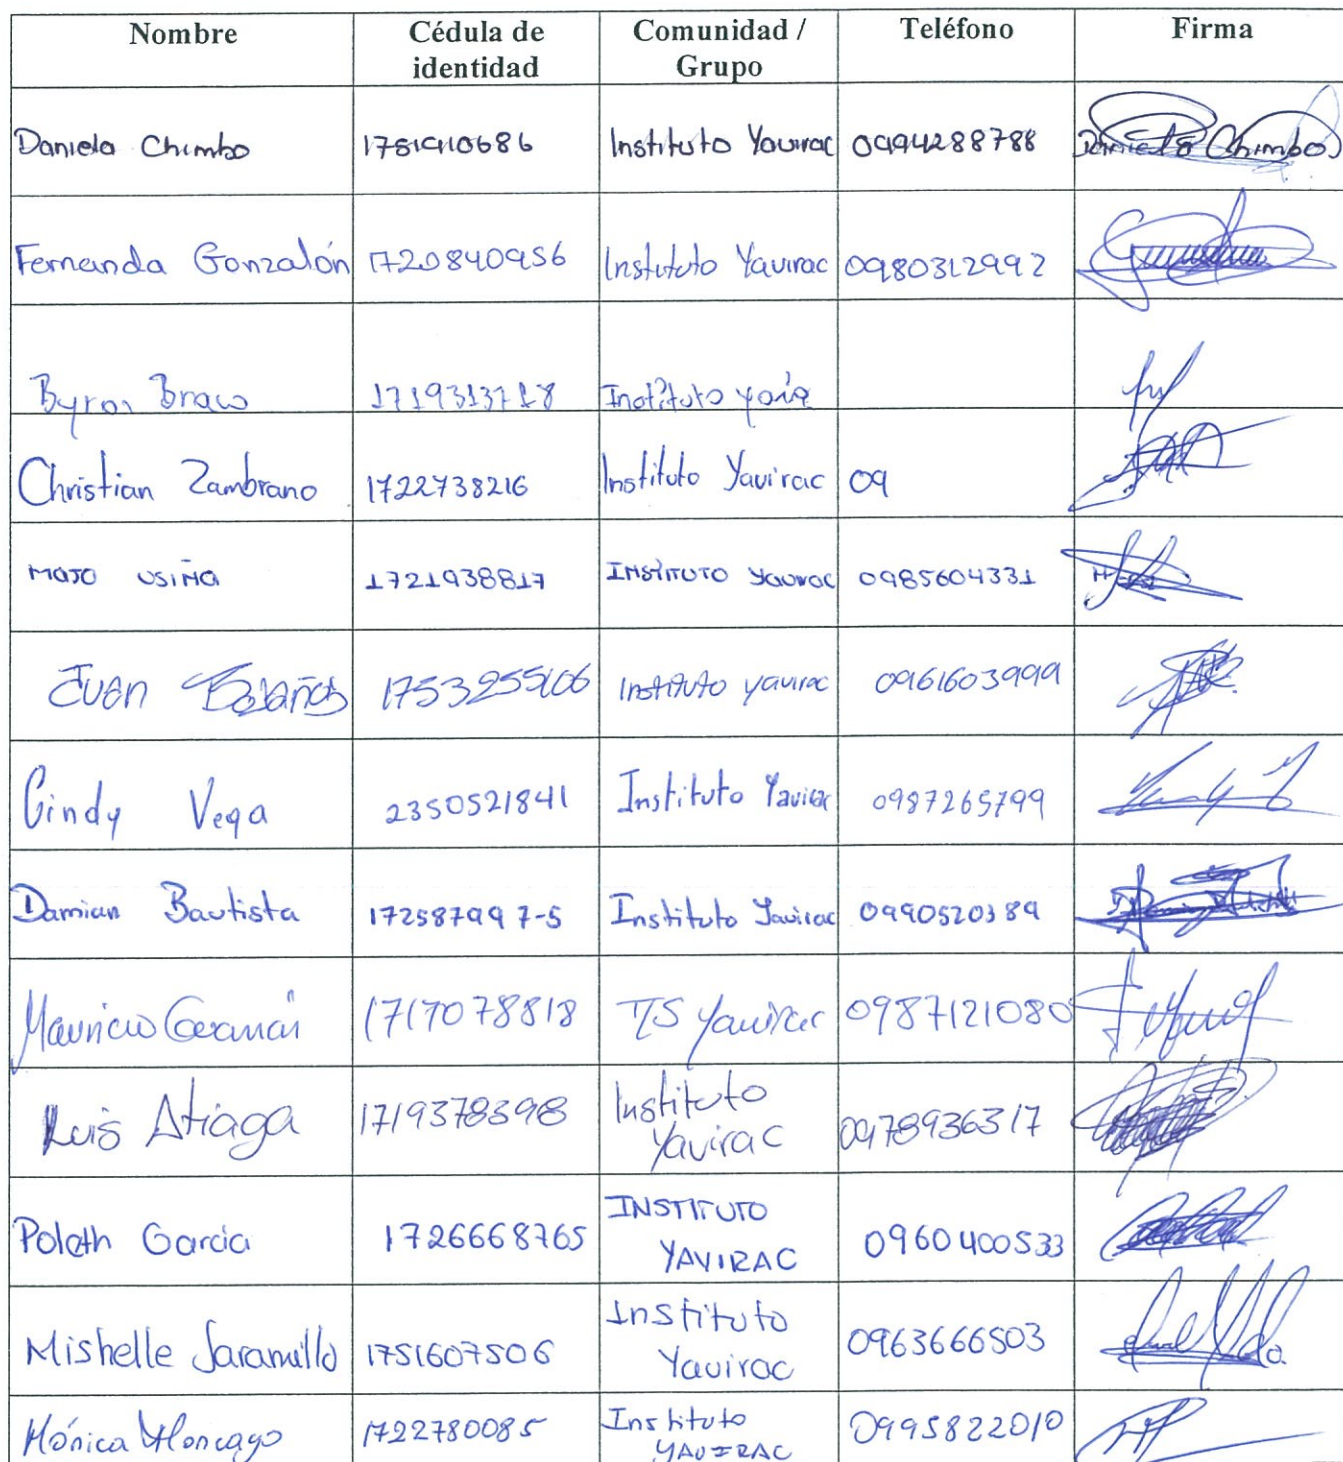 Nombre Cédula de identidad Comunidad / Grupo Teléfono Firma
Daniela Chimbo 1751910686 Instituto Yavirac 0994288788 Daniela Chimbo
Fernanda Gonzalón 1720840956 Instituto Yavirac 0980312992
Byron Bravo 1719313718 Instituto
Christian Zambrano 1722738216 Instituto Yavirac 09
MAJO USIÑA 1721938817 INSTITUTO Yavirac 0985604331
Juan Bolaños Instituto yavirac 0961603999
Cindy Vega 2350521841 Instituto Yavirac 0987265799
Damian Bautista 172587997-5 Instituto Yavirac 0990520389
Mauricio 1717078818 TS Yavirac 0987121080
Luis Atiaga 1719378398 Instituto Yavirac 0978936317
Poleth Garcia 1726668765 INSTITUTO YAVIRAC 0960400533
Mishelle Jaramillo 1751607506 Instituto Yavirac 0963666503
Mónica Moncayo 1722780085 Instituto YAVIRAC 0995822010